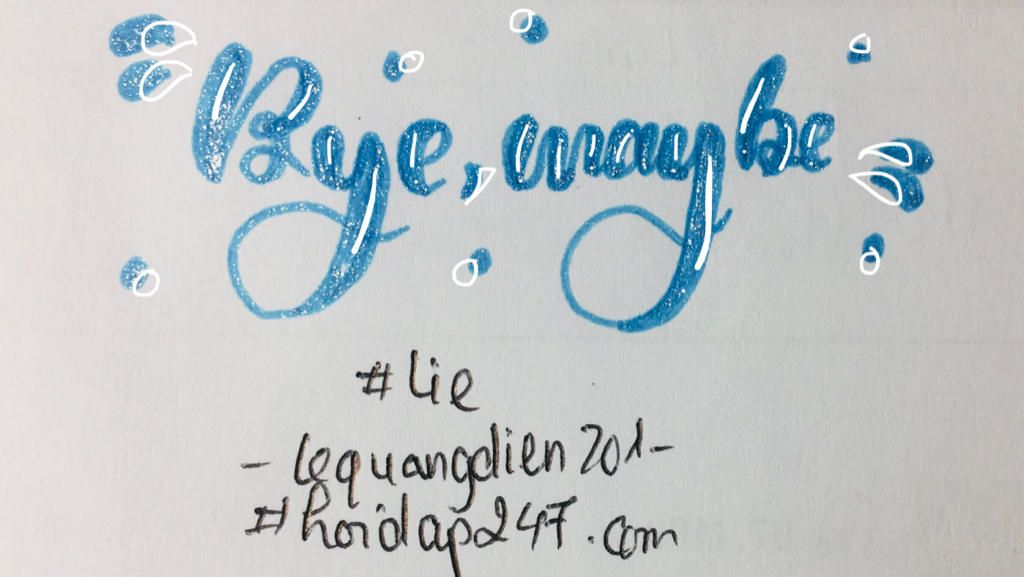 Bye, maybe
#lie
- lequangdien201-
#hoidap247.com